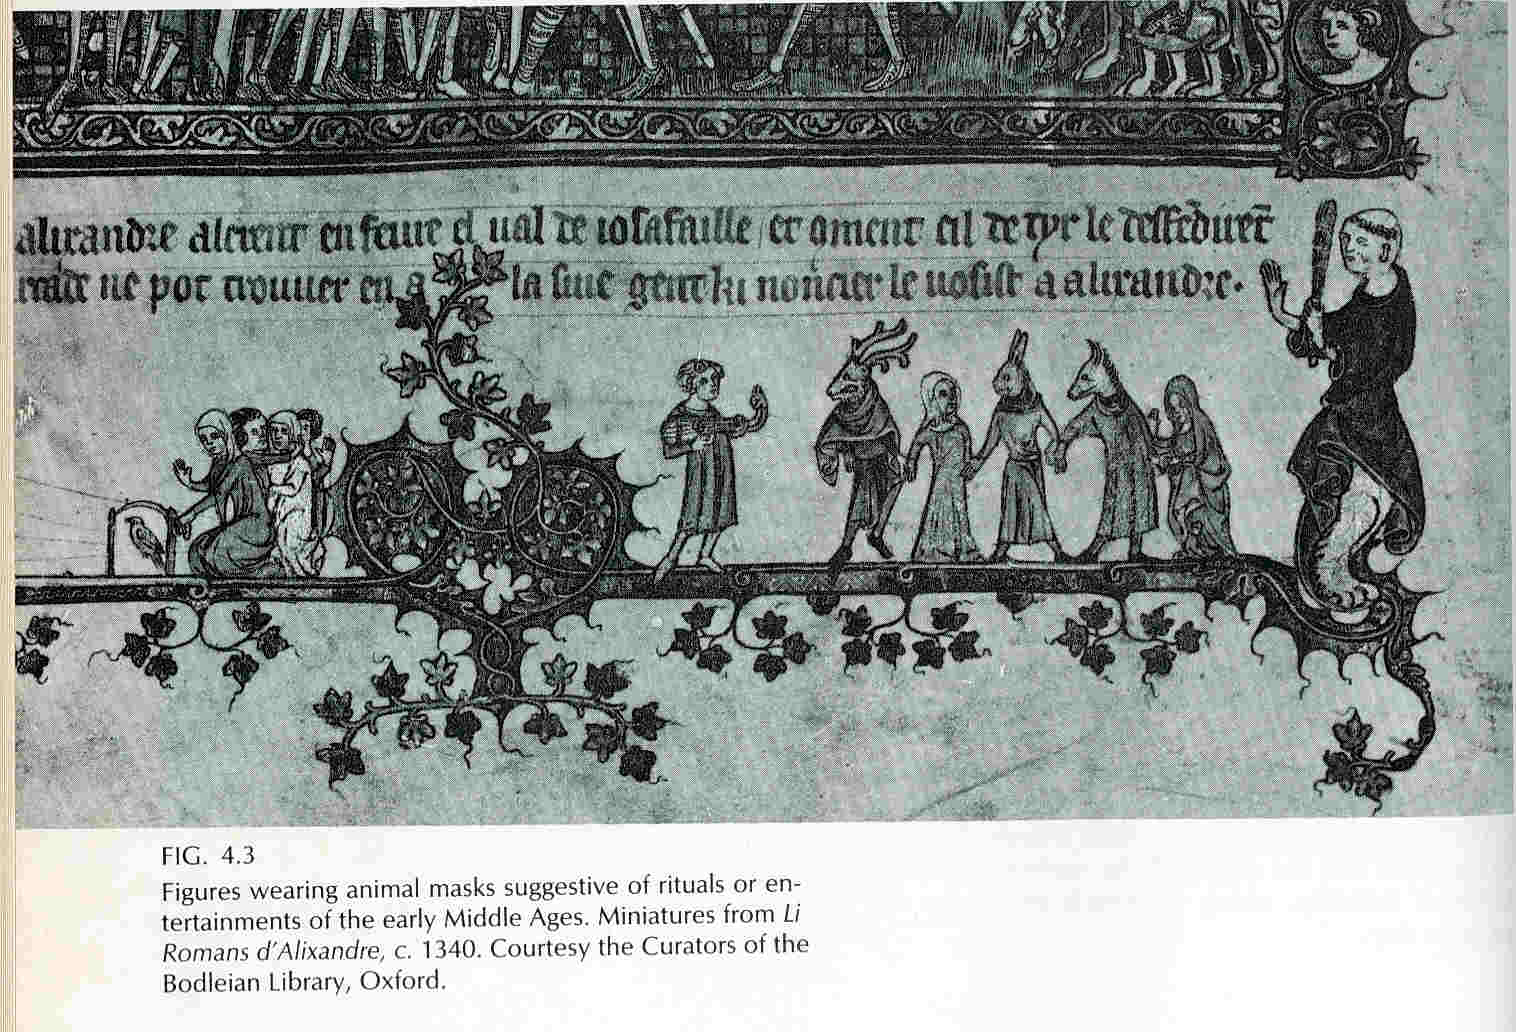 alixandre aleient en feurre el ual de iosafaille / et coment cil de tyr le deffendirent
ne pot trouuer en a la siue gent ki noncier le uosist a alixandre.
FIG. 4.3
Figures wearing animal masks suggestive of rituals or en-
tertainments of the early Middle Ages. Miniatures from Li
Romans d'Alixandre, c. 1340. Courtesy the Curators of the
Bodleian Library, Oxford.